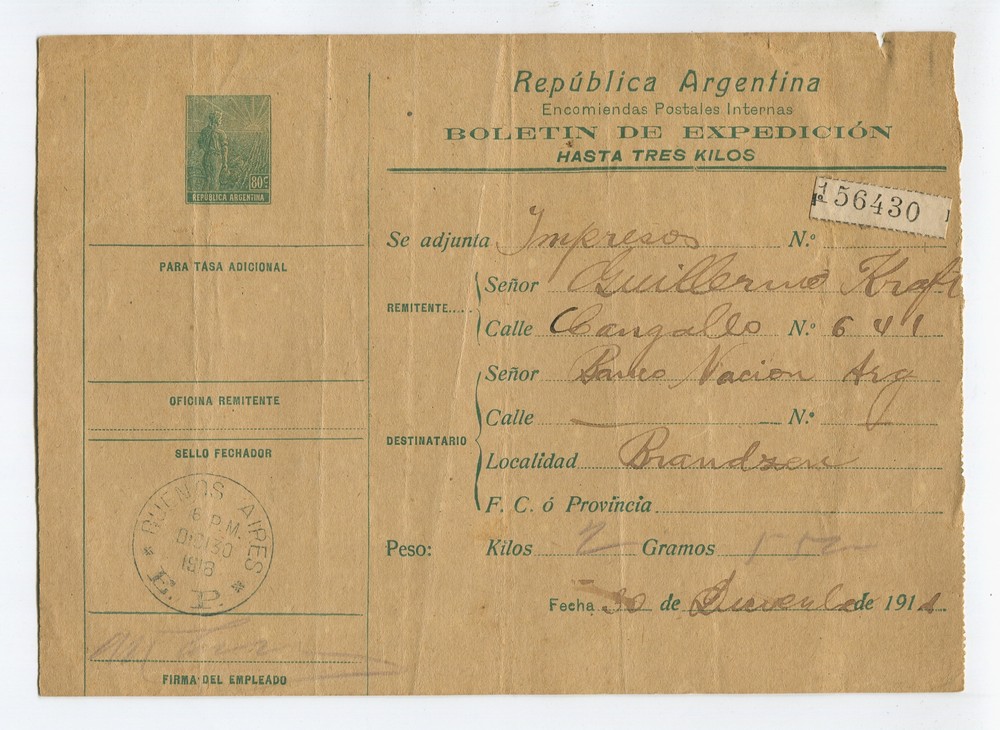 República Argentina
Encomiendas Postales Internas
BOLETIN DE EXPEDICIÓN
HASTA TRES KILOS
80 Cs
REPÚBLICA ARGENTINA
Nº 156430
Se adjunta Impresos N.º
PARA TASA ADICIONAL
REMITENTE.....
Señor Guillermo Kraft
Calle Cangallo N.º 641
OFICINA REMITENTE
DESTINATARIO
Señor Banco Nacion Arg
Calle — N.º
Localidad Brandsen
F. C. ó Provincia
SELLO FECHADOR
BUENOS AIRES
6 P.M.
DIC 30
1918
* E. P. *
Peso: Kilos 2 Gramos
Fecha 30 de de 191
FIRMA DEL EMPLEADO